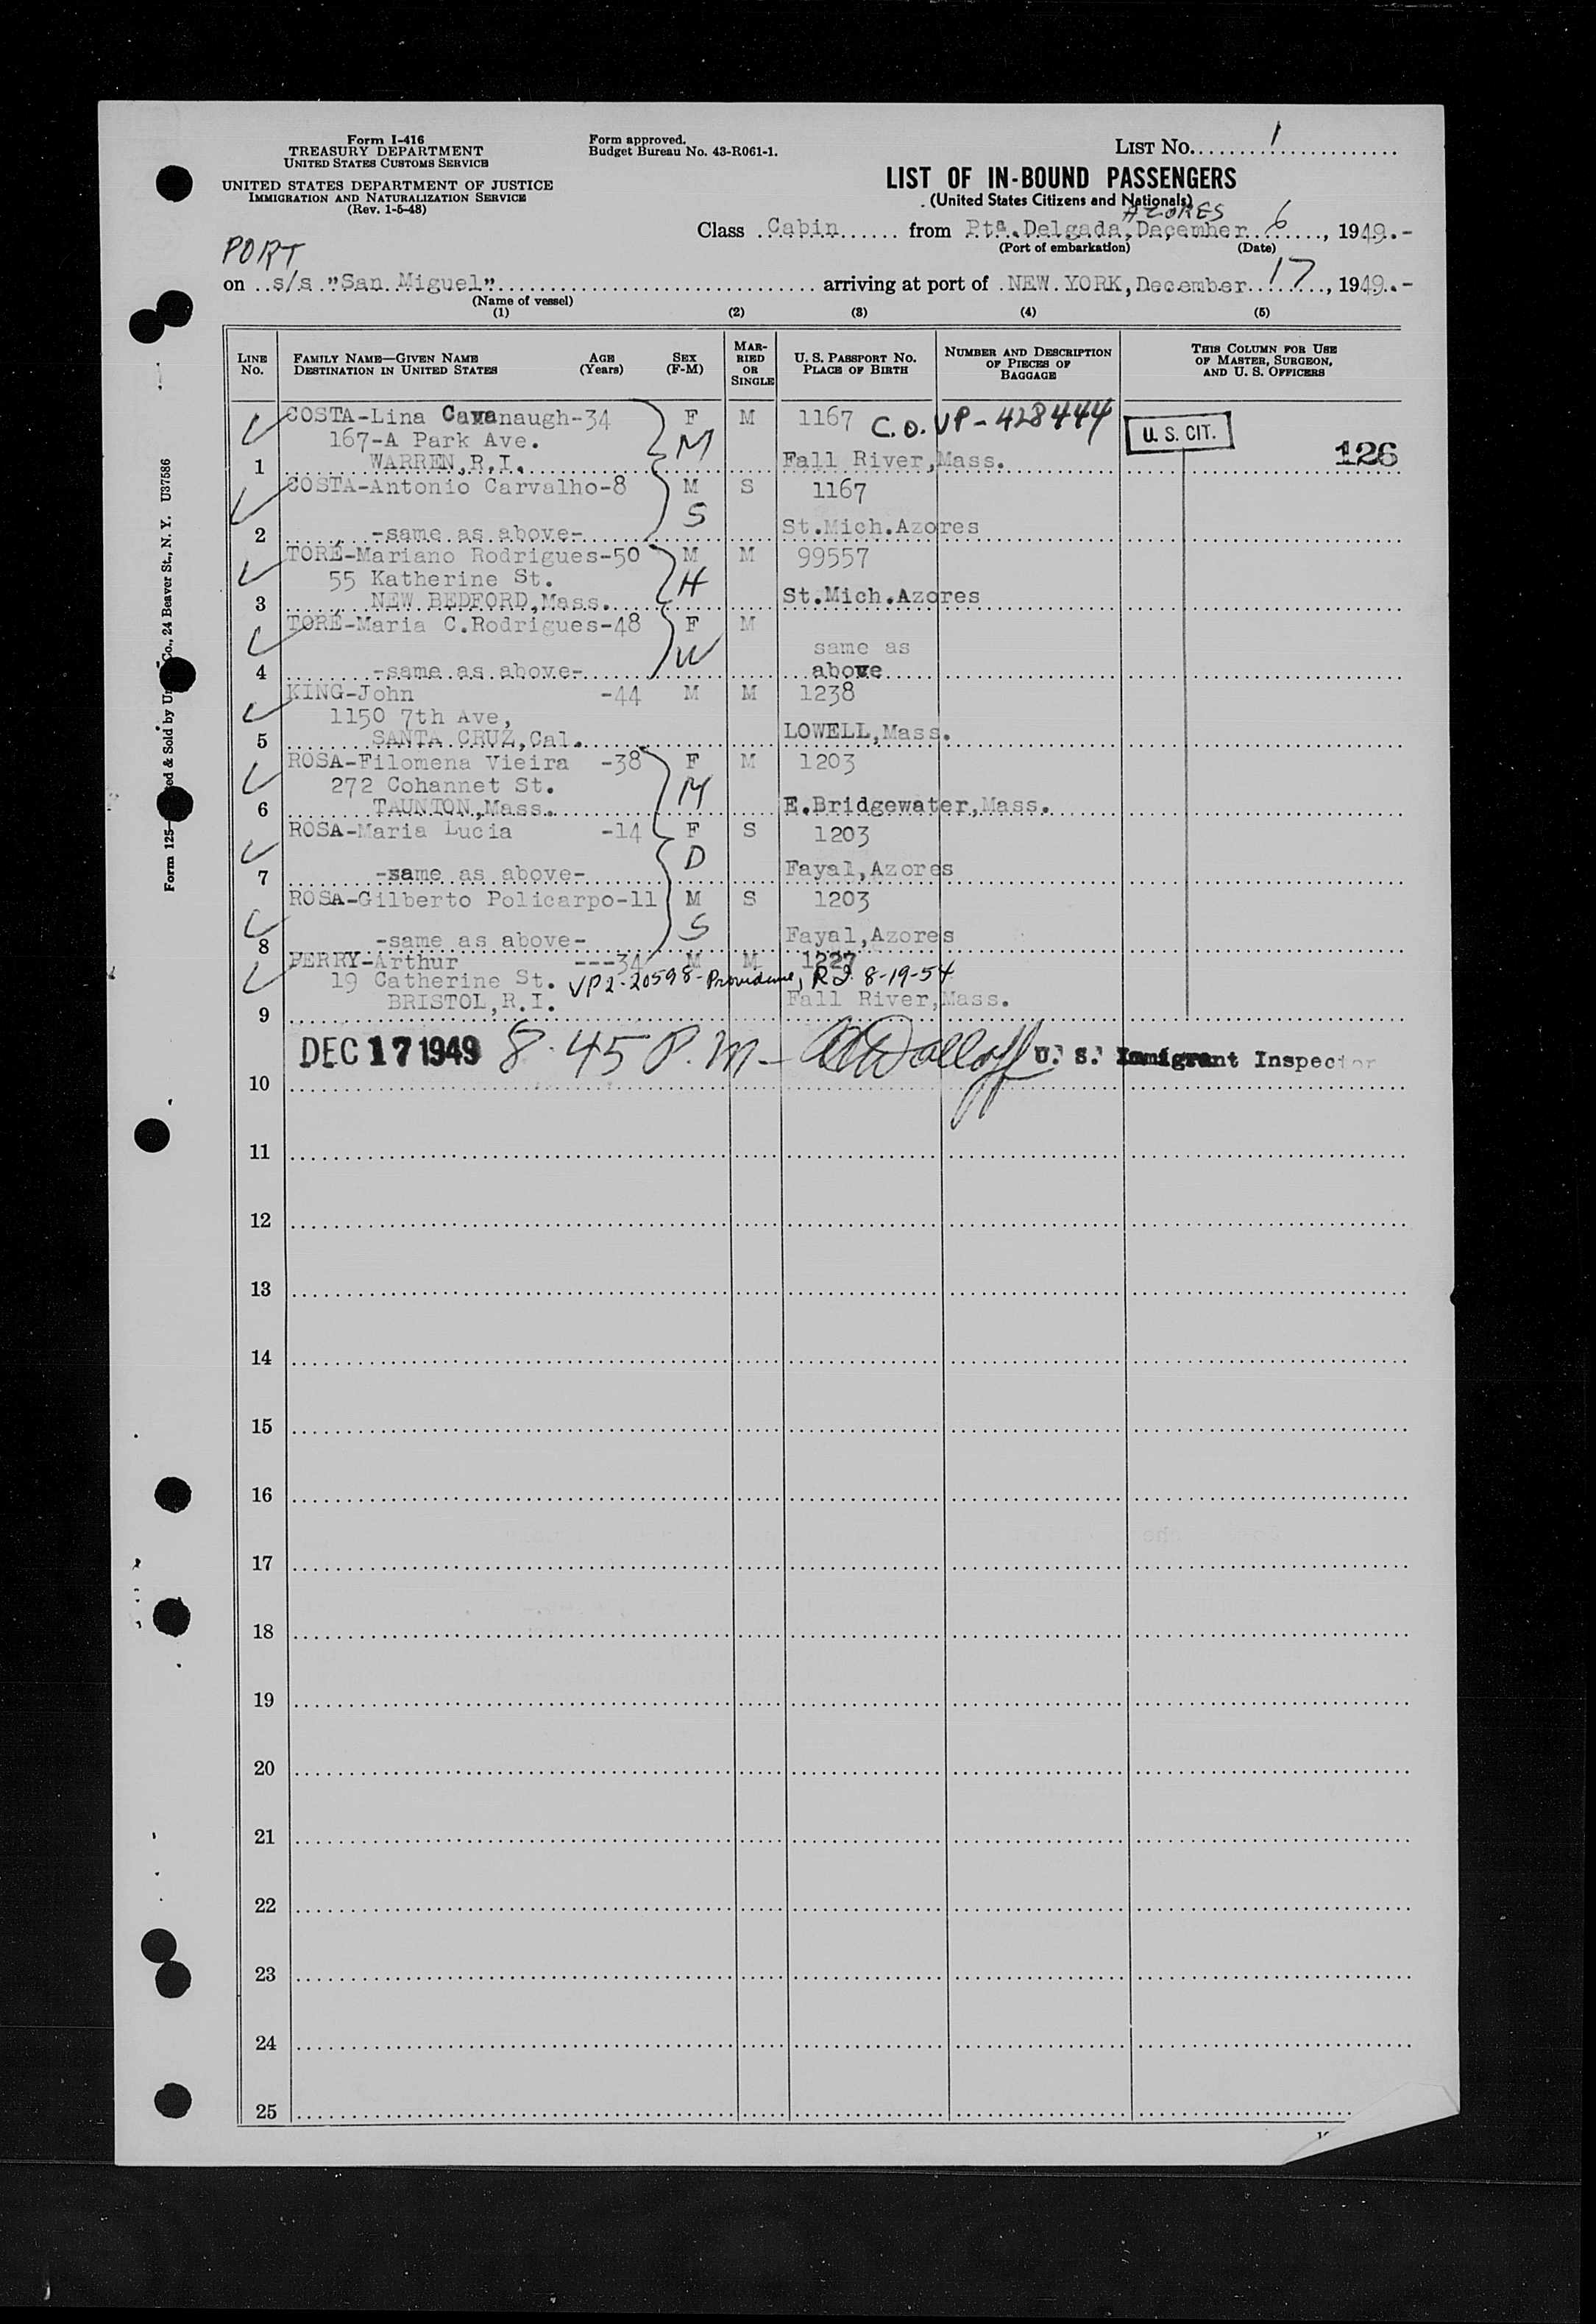 Form I-416
TREASURY DEPARTMENT
UNITED STATES CUSTOMS SERVICE
UNITED STATES DEPARTMENT OF JUSTICE
IMMIGRATION AND NATURALIZATION SERVICE
(Rev. 1-5-48)
Form approved.
Budget Bureau No. 43-R061-1.
LIST No. 1
LIST OF IN-BOUND PASSENGERS
(United States Citizens and Nationals)
AZORES
Class Cabin from Ptª.Delgada, December 6, 1949.-
(Port of embarkation) (Date)
PORT
on s/s "San Miguel" arriving at port of NEW YORK, December 17, 1949.-
(Name of vessel)
(1) (2) (3) (4) (5)
LINE No. FAMILY NAME—GIVEN NAME DESTINATION IN UNITED STATES AGE (Years) SEX (F-M) MARRIED OR SINGLE U. S. PASSPORT No. PLACE OF BIRTH NUMBER AND DESCRIPTION OF PIECES OF BAGGAGE THIS COLUMN FOR USE OF MASTER, SURGEON, AND U. S. OFFICERS
COSTA-Lina Cavanaugh-34 F M 1167 C.O. VP-428444 U. S. CIT.
167-A Park Ave. M 126
1 WARREN,R.I. Fall River,Mass.
COSTA-Antonio Carvalho-8 M S 1167
S
2 -same as above- St.Mich.Azores
TORÉ-Mariano Rodrigues-50 M M 99557
55 Katherine St. H
3 NEW BEDFORD,Mass. St.Mich.Azores
TORÉ-Maria C.Rodrigues-48 F M
W same as
4 -same as above- above
KING-John -44 M M 1238
1150 7th Ave,
5 SANTA CRUZ,Cal. LOWELL,Mass.
ROSA-Filomena Vieira -38 F M 1203
272 Cohannet St. M
6 TAUNTON,Mass. E.Bridgewater,Mass.
ROSA-Maria Lucia -14 F S 1203
D
7 -same as above- Fayal,Azores
ROSA-Gilberto Policarpo-11 M S 1203
S
8 -same as above- Fayal,Azores
PERRY-Arthur ---34 M M 1227
19 Catherine St. VP2-20598-Providence, R.I. 8-19-54
9 BRISTOL,R.I. Fall River,Mass.
DEC 17 1949 8.45 P.M- U. S. Immigrant Inspector
10
11
12
13
14
15
16
17
18
19
20
21
22
23
24
25
Co., 24 Beaver St., N. Y. U37586